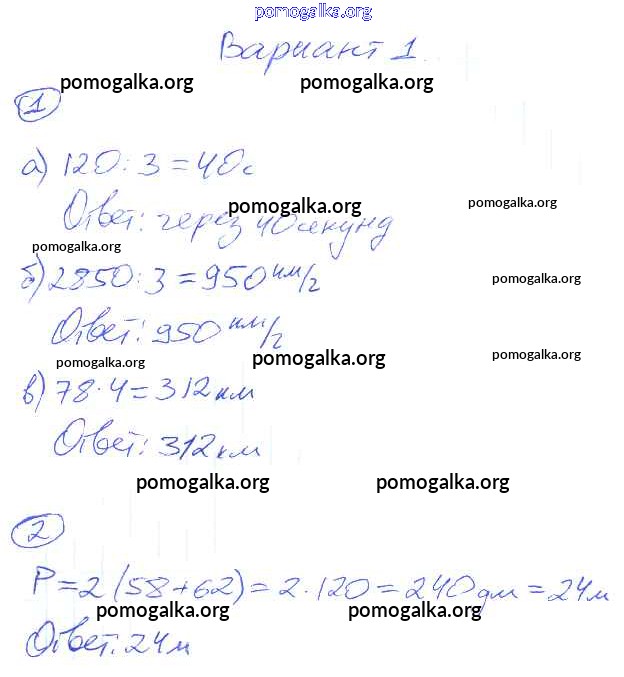 pomogalka.org
Вариант 1
pomogalka.org pomogalka.org
1
а) 120 : 3 = 40с
Ответ: через 40 секунд
pomogalka.org pomogalka.org
pomogalka.org
б) 2850 : 3 = 950 км/г
pomogalka.org
Ответ: 950 км/г
pomogalka.org pomogalka.org pomogalka.org
в) 78 · 4 = 312 км
Ответ: 312 км
pomogalka.org pomogalka.org
2
P = 2 (58 + 62) = 2 · 120 = 240 дм = 24 м
pomogalka.org pomogalka.org
Ответ: 24 м